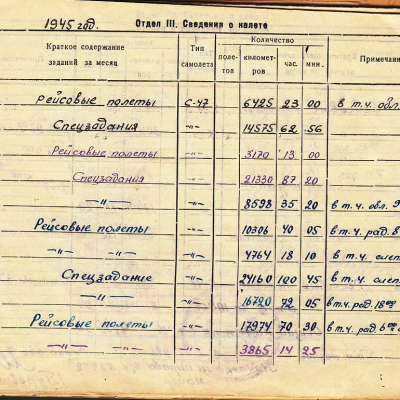 1945 год. Отдел III. Сведения о налете
Краткое содержание заданий за месяц Тип самолета Количество Примечани
полетов километров час. мин.
Рейсовые полеты С-47 6425 23 00 в т.ч. обл.
Спецзадания -"- 14575 62 56
Рейсовые полеты -"- 3170 13 00
Спецзадания -"- 21330 87 20
-"- -"- 8598 35 20 в т.ч. обл. 9
Рейсовые полеты -"- 10306 40 05 в т.ч. рад. 8
-"- -"- -"- 4764 18 10 в т.ч. слеп.
Спецзадание -"- 24160 100 45 в т.ч. слеп.
-"- -"- 16720 72 05 в т.ч. рад. 18
Рейсовые полеты -"- 17974 70 30 в т.ч. рад 6
-"- -"- -"- 3865 14 25